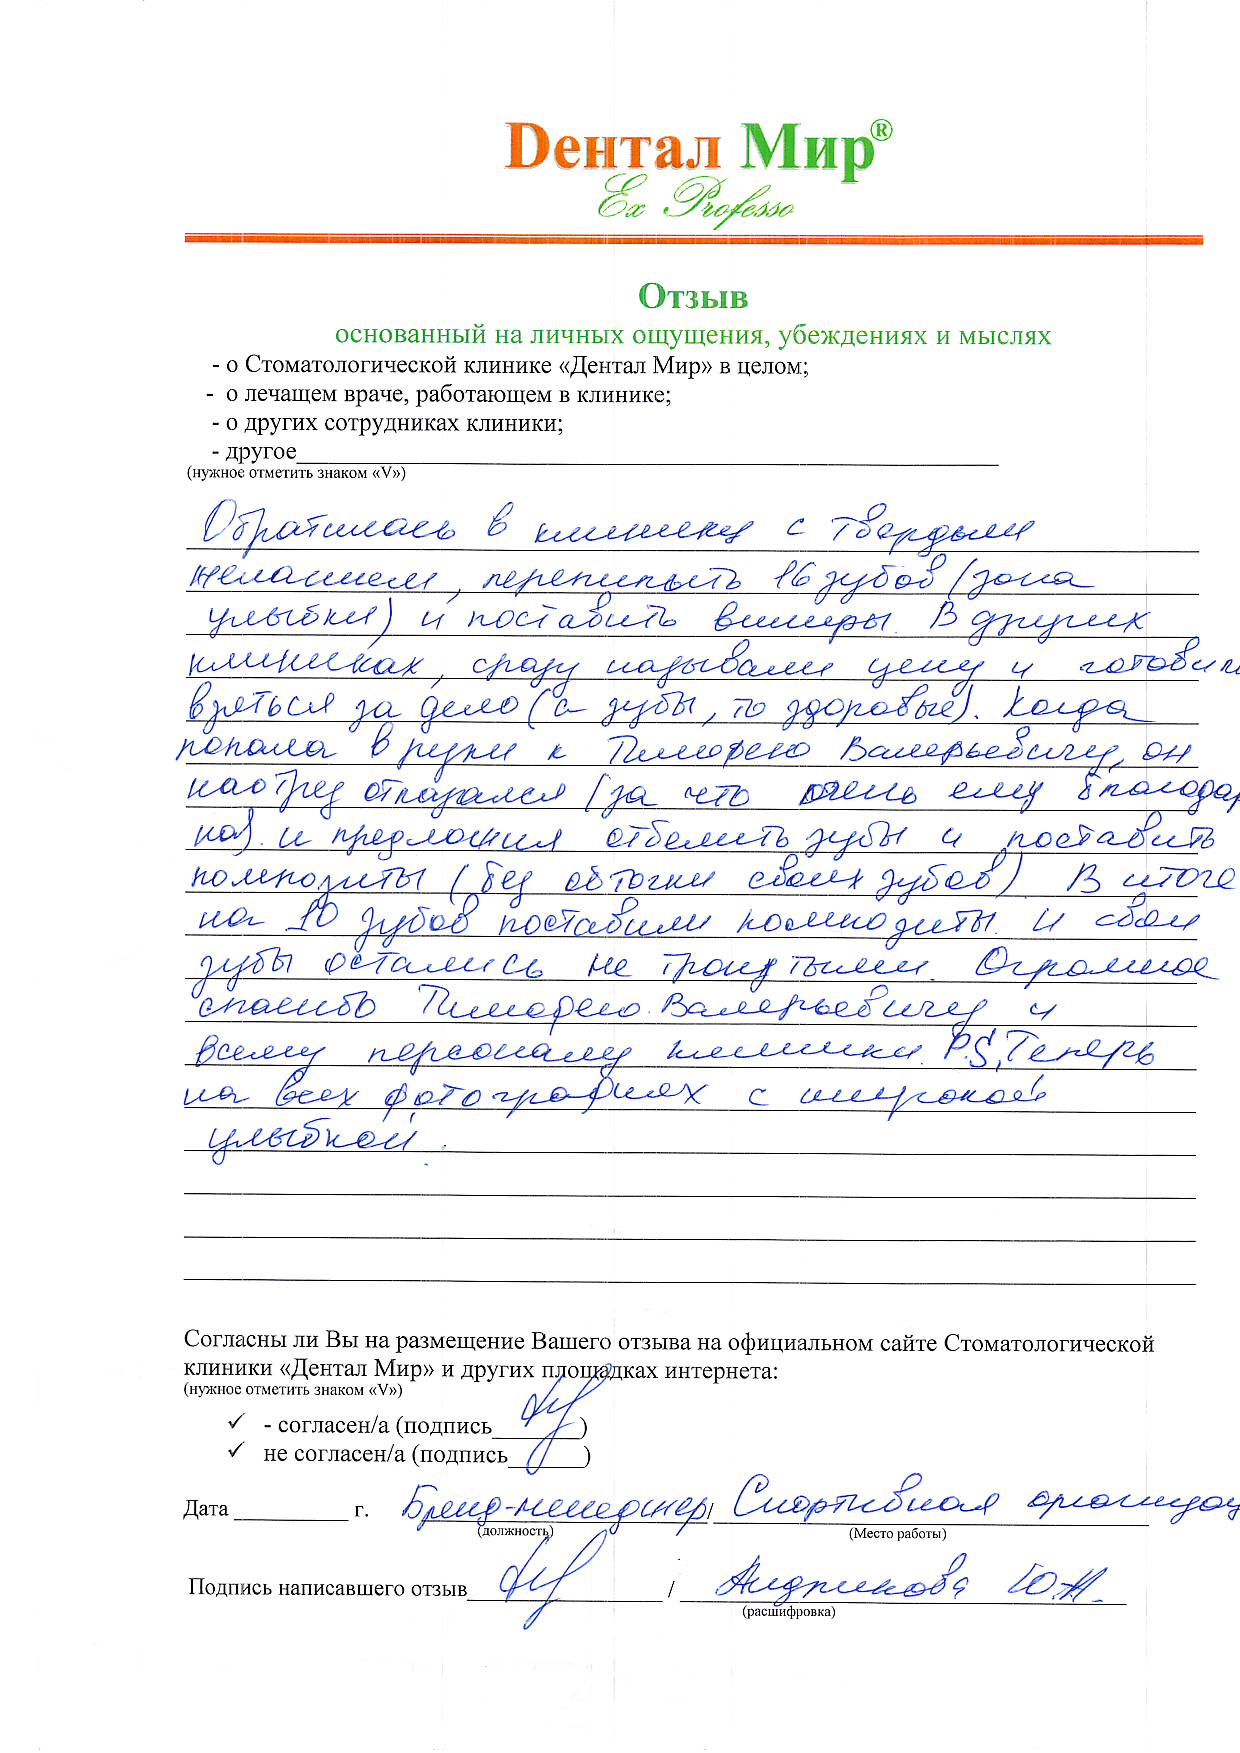 Dентал Мир®
Ex Professo
Отзыв
основанный на личных ощущения, убеждениях и мыслях
- о Стоматологической клинике «Дентал Мир» в целом;
- о лечащем враче, работающем в клинике;
- о других сотрудниках клиники;
- другое
(нужное отметить знаком «V»)
Обратилась в клинику с твердым
желанием, перепилить 16 зубов (зона
улыбки) и поставить виниры. В других
клиниках, сразу называли цену и готовы
взяться за дело (а зубы, то здоровые). Когда
попала в руки к Тимофею Валерьевичу, он
наотрез отказался (за что очень ему благодар
на). и предложил отбелить зубы и поставить
композиты (без обточки своих зубов) В итоге
на 10 зубов поставили композиты. И свои
зубы остались не тронутыми. Огромное
спасибо Тимофею Валерьевичу и
всему персоналу клиники. P.S. Теперь
на всех фотографиях с широкой
улыбкой.
Согласны ли Вы на размещение Вашего отзыва на официальном сайте Стоматологической
клиники «Дентал Мир» и других площадках интернета:
(нужное отметить знаком «V»)
✓ - согласен/а (подпись )
✓ не согласен/а (подпись )
Дата г. Бренд-менеджер / Спортивная
(должность) (Место работы)
Подпись написавшего отзыв / Ю.М.
(расшифровка)